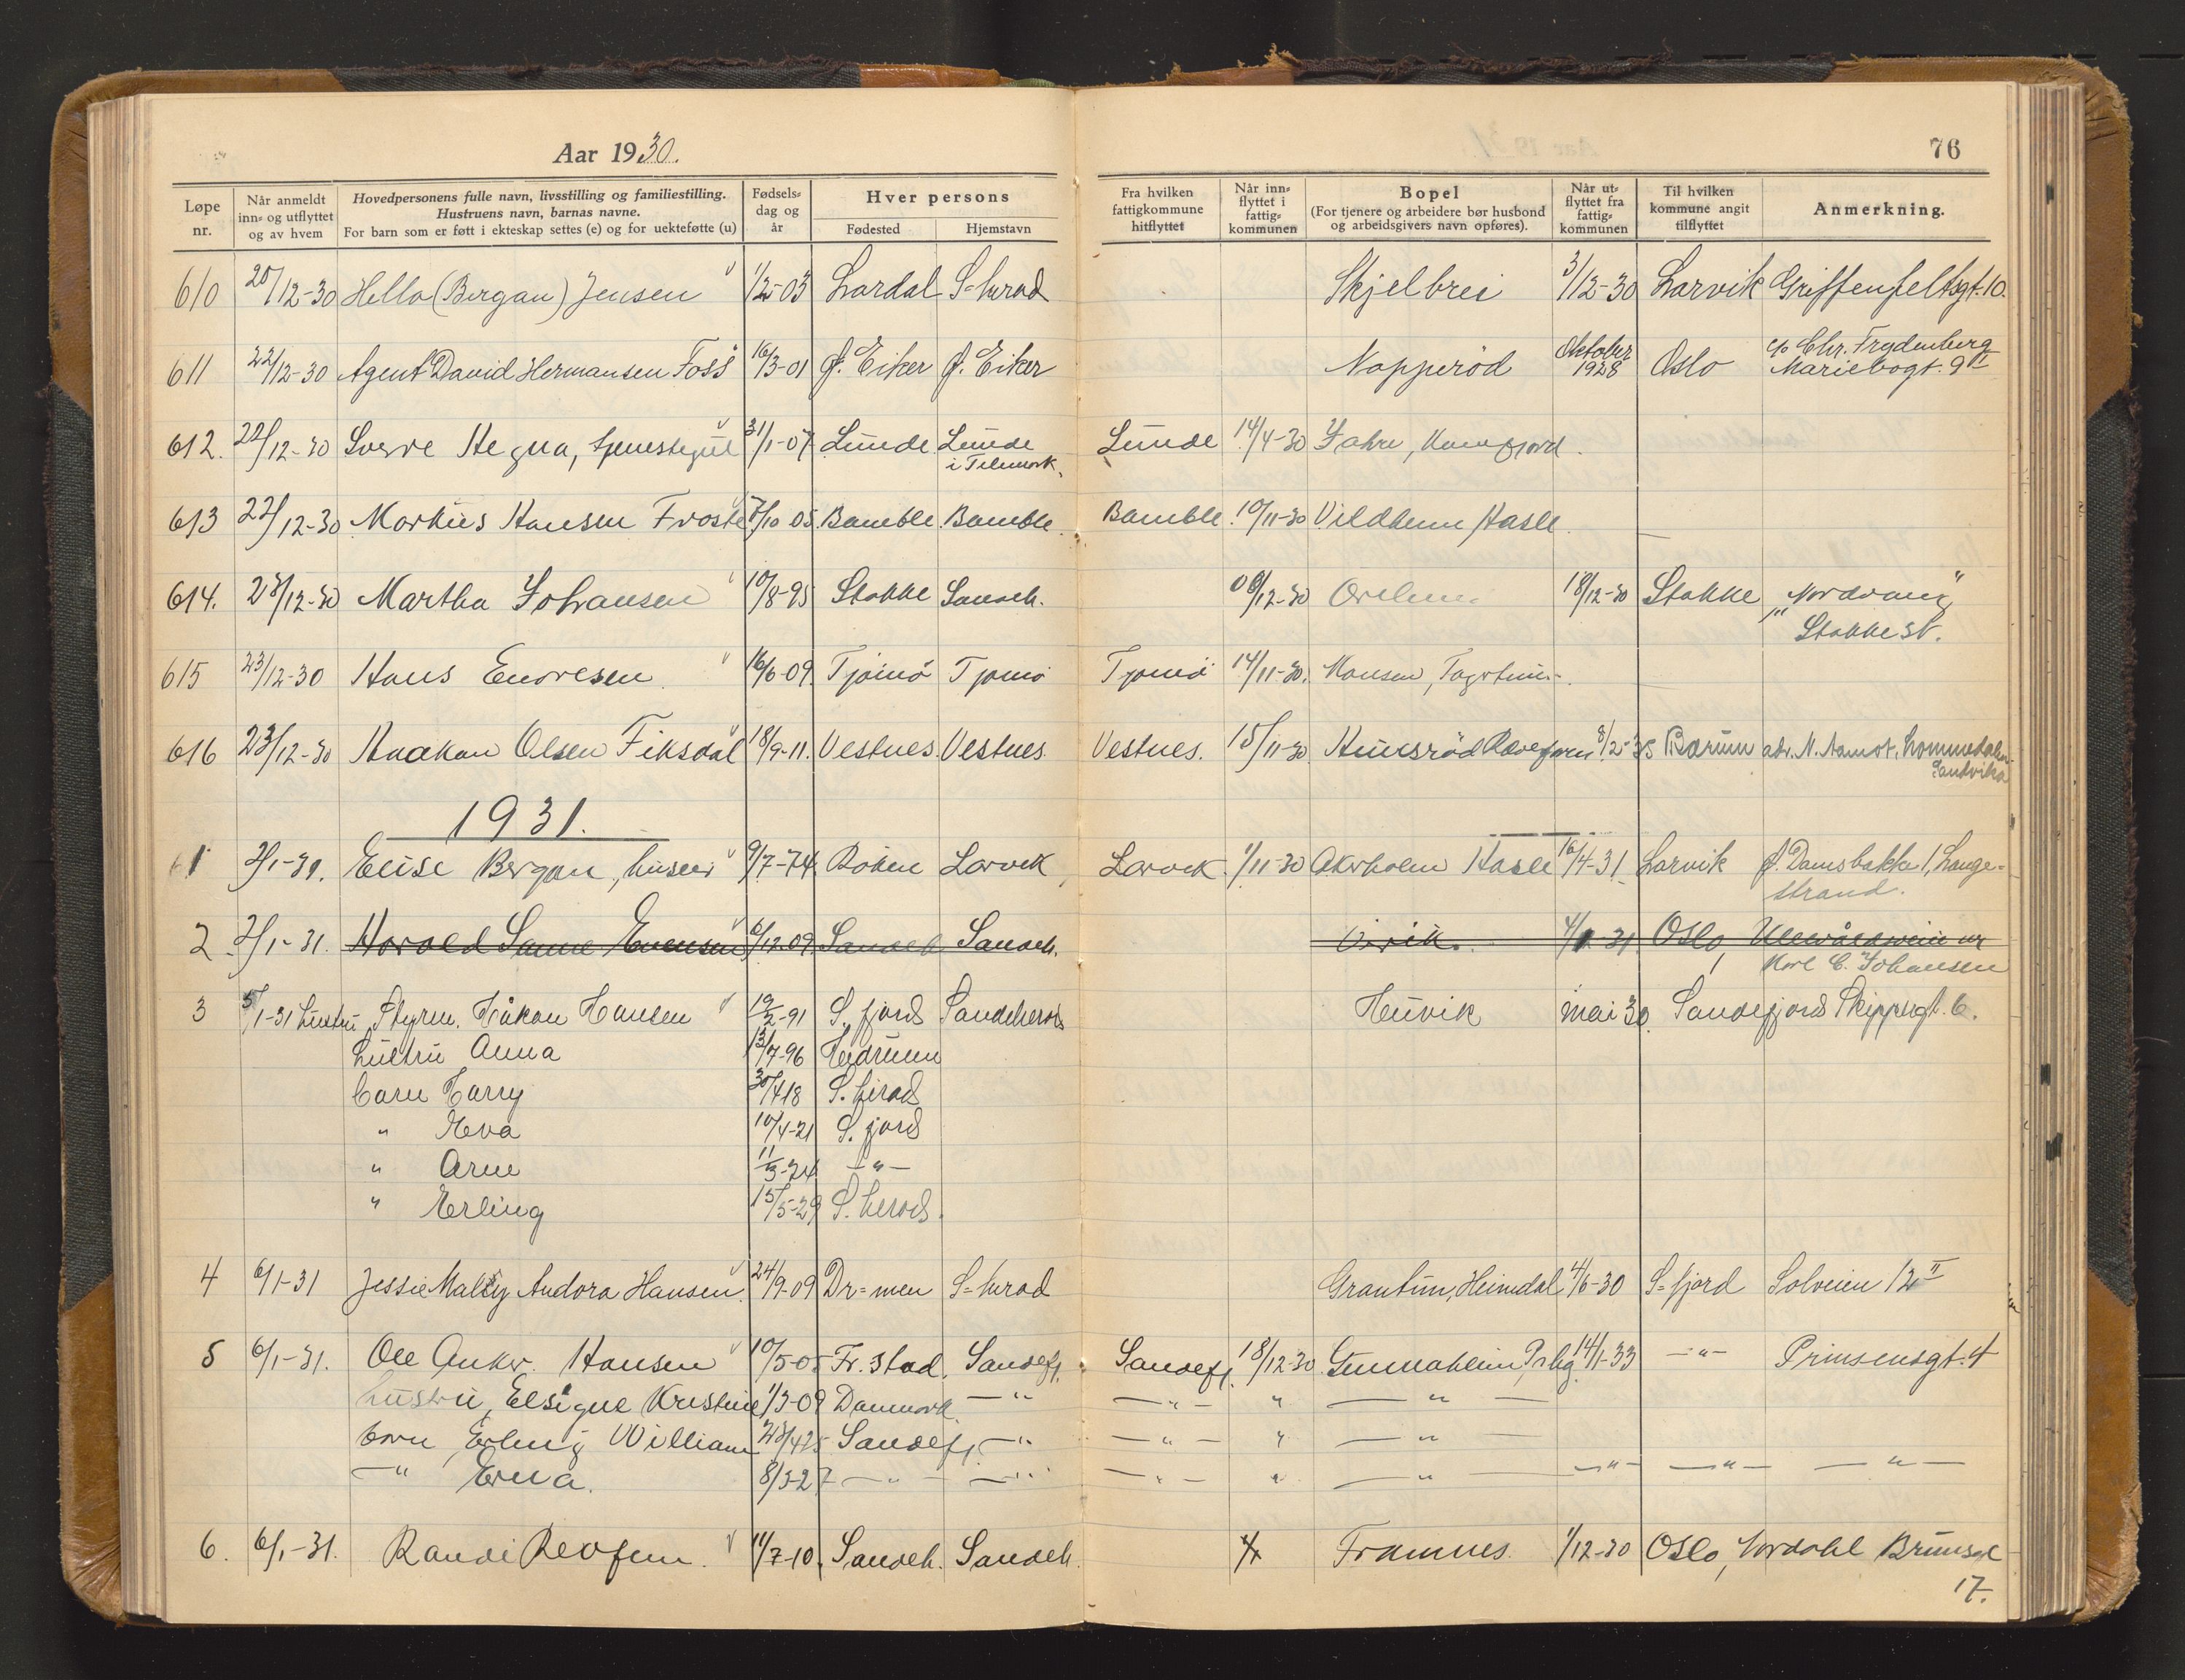 Aar 1930.
76
Løpe nr.
Når anmeldt inn= og utflyttet og av hvem
Hovedpersonens fulle navn, livsstilling og familiestilling. Hustruens navn, barnas navne. For barn som er født i ekteskap settes (e) og for uekteføtte (u)
Fødsels= dag og år
Hver persons
Fødested
Hjemstavn
Fra hvilken fattigkommune hitflyttet
Når inn= flyttet i fattig= kommunen
Bopel (For tjenere og arbeidere bør husbond og arbeidsgivers navn opføres).
Når ut= flyttet fra fattig= kommunen
Til hvilken kommune angit tilflyttet
Anmerkning.
610 20/12-30 Hella (Bergan) Jensen 1/2-03 Lardal S=herad Skjelbrei 3/12-30 Larvik Griffenfeltsgt. 10.
611 22/12-30 Agent David Hermansen Foss 16/3-01 Ø. Eiker Ø. Eiker Napperød Oktober 1928 Oslo c/o Chr. Frydenberg
Mariebogt. 9 II
612. 22/12-30 Sverre Hegna, tjenestegut 31/1-07 Lunde Lunde Lunde 14/4-30
i Telemark.
613 22/12-30 Markus Hansen Froste 7/10 05 Bamble. Bamble. Bamble. 10/11-30 Vildhem Hasle
614. 23/12-30 Martha Johansen 10/8-95 Stokke Sandeh. 18/12-30 Stokke "Nordvang"
Stokke st.
615 23/12-30 Hans Enoresen 16/6-09. Tjømø Tjømø Tjømø 14/11-30. Hansen,
616 23/12-30 Haakon Olsen Fiksdal 18/9-11. Vestnes. Vestnes. Vestnes. 15/11-30 8/2-35 Bærum adr. N. Aamot, Lommedalen
Sandvika
1931.
1 2/1-31. Elise Bergan, 9/7-74. Larvik Larvik. 1/11-30 Akerholm Hasle 16/4-31 Larvik Ø. Damsbakke 1, Lange=
strand.
2 2/1-31. Harald Sanne Evensen 6/12-09. Sandeh Sandeh. Virik. Oslo, Ullevålsveien
Karl C. Johansen
3 5/1-31 Styrm. Håkon Hansen 19/2-91 S. fjord Sandeherad Huvik mai 30. Sandefjord Skippergt. 6.
hustru Anna 13/7-96 Hedrum
barn Harry 30/4 18 S. herad
" Eva 10/4-21 S. fjord
" Arne 11/3-24 -"-
" Erling 15/5-29 S. herad.
4 6/1-31 Jessie Andora Hansen. 24/9-09 Dr=men S=herad Grantun, Heimdal 4/6-30 S=fjord Solveien 12 II
5 6/1-31. Ole Anker. Hansen 10/5-05 Fr.stad. Sandefj. Sandefj. 18/12-30 Gunnaheim, 14/1-33 -"- Prinsensgt. 4
hustru, Kristine 1/3-09 Danmark. -" -"- " -"-
barn Erling William 23/4 25 Sandefj. -" -"- " -"-
-" Erna. 8/3-27 -"- -"- -"- " -"- -"- -"- -"-
6. 6/1-31. Randi Revfem. 11/7-10. Sandeh. Sandeh. Framnes. 1/12-30 Oslo,
17.